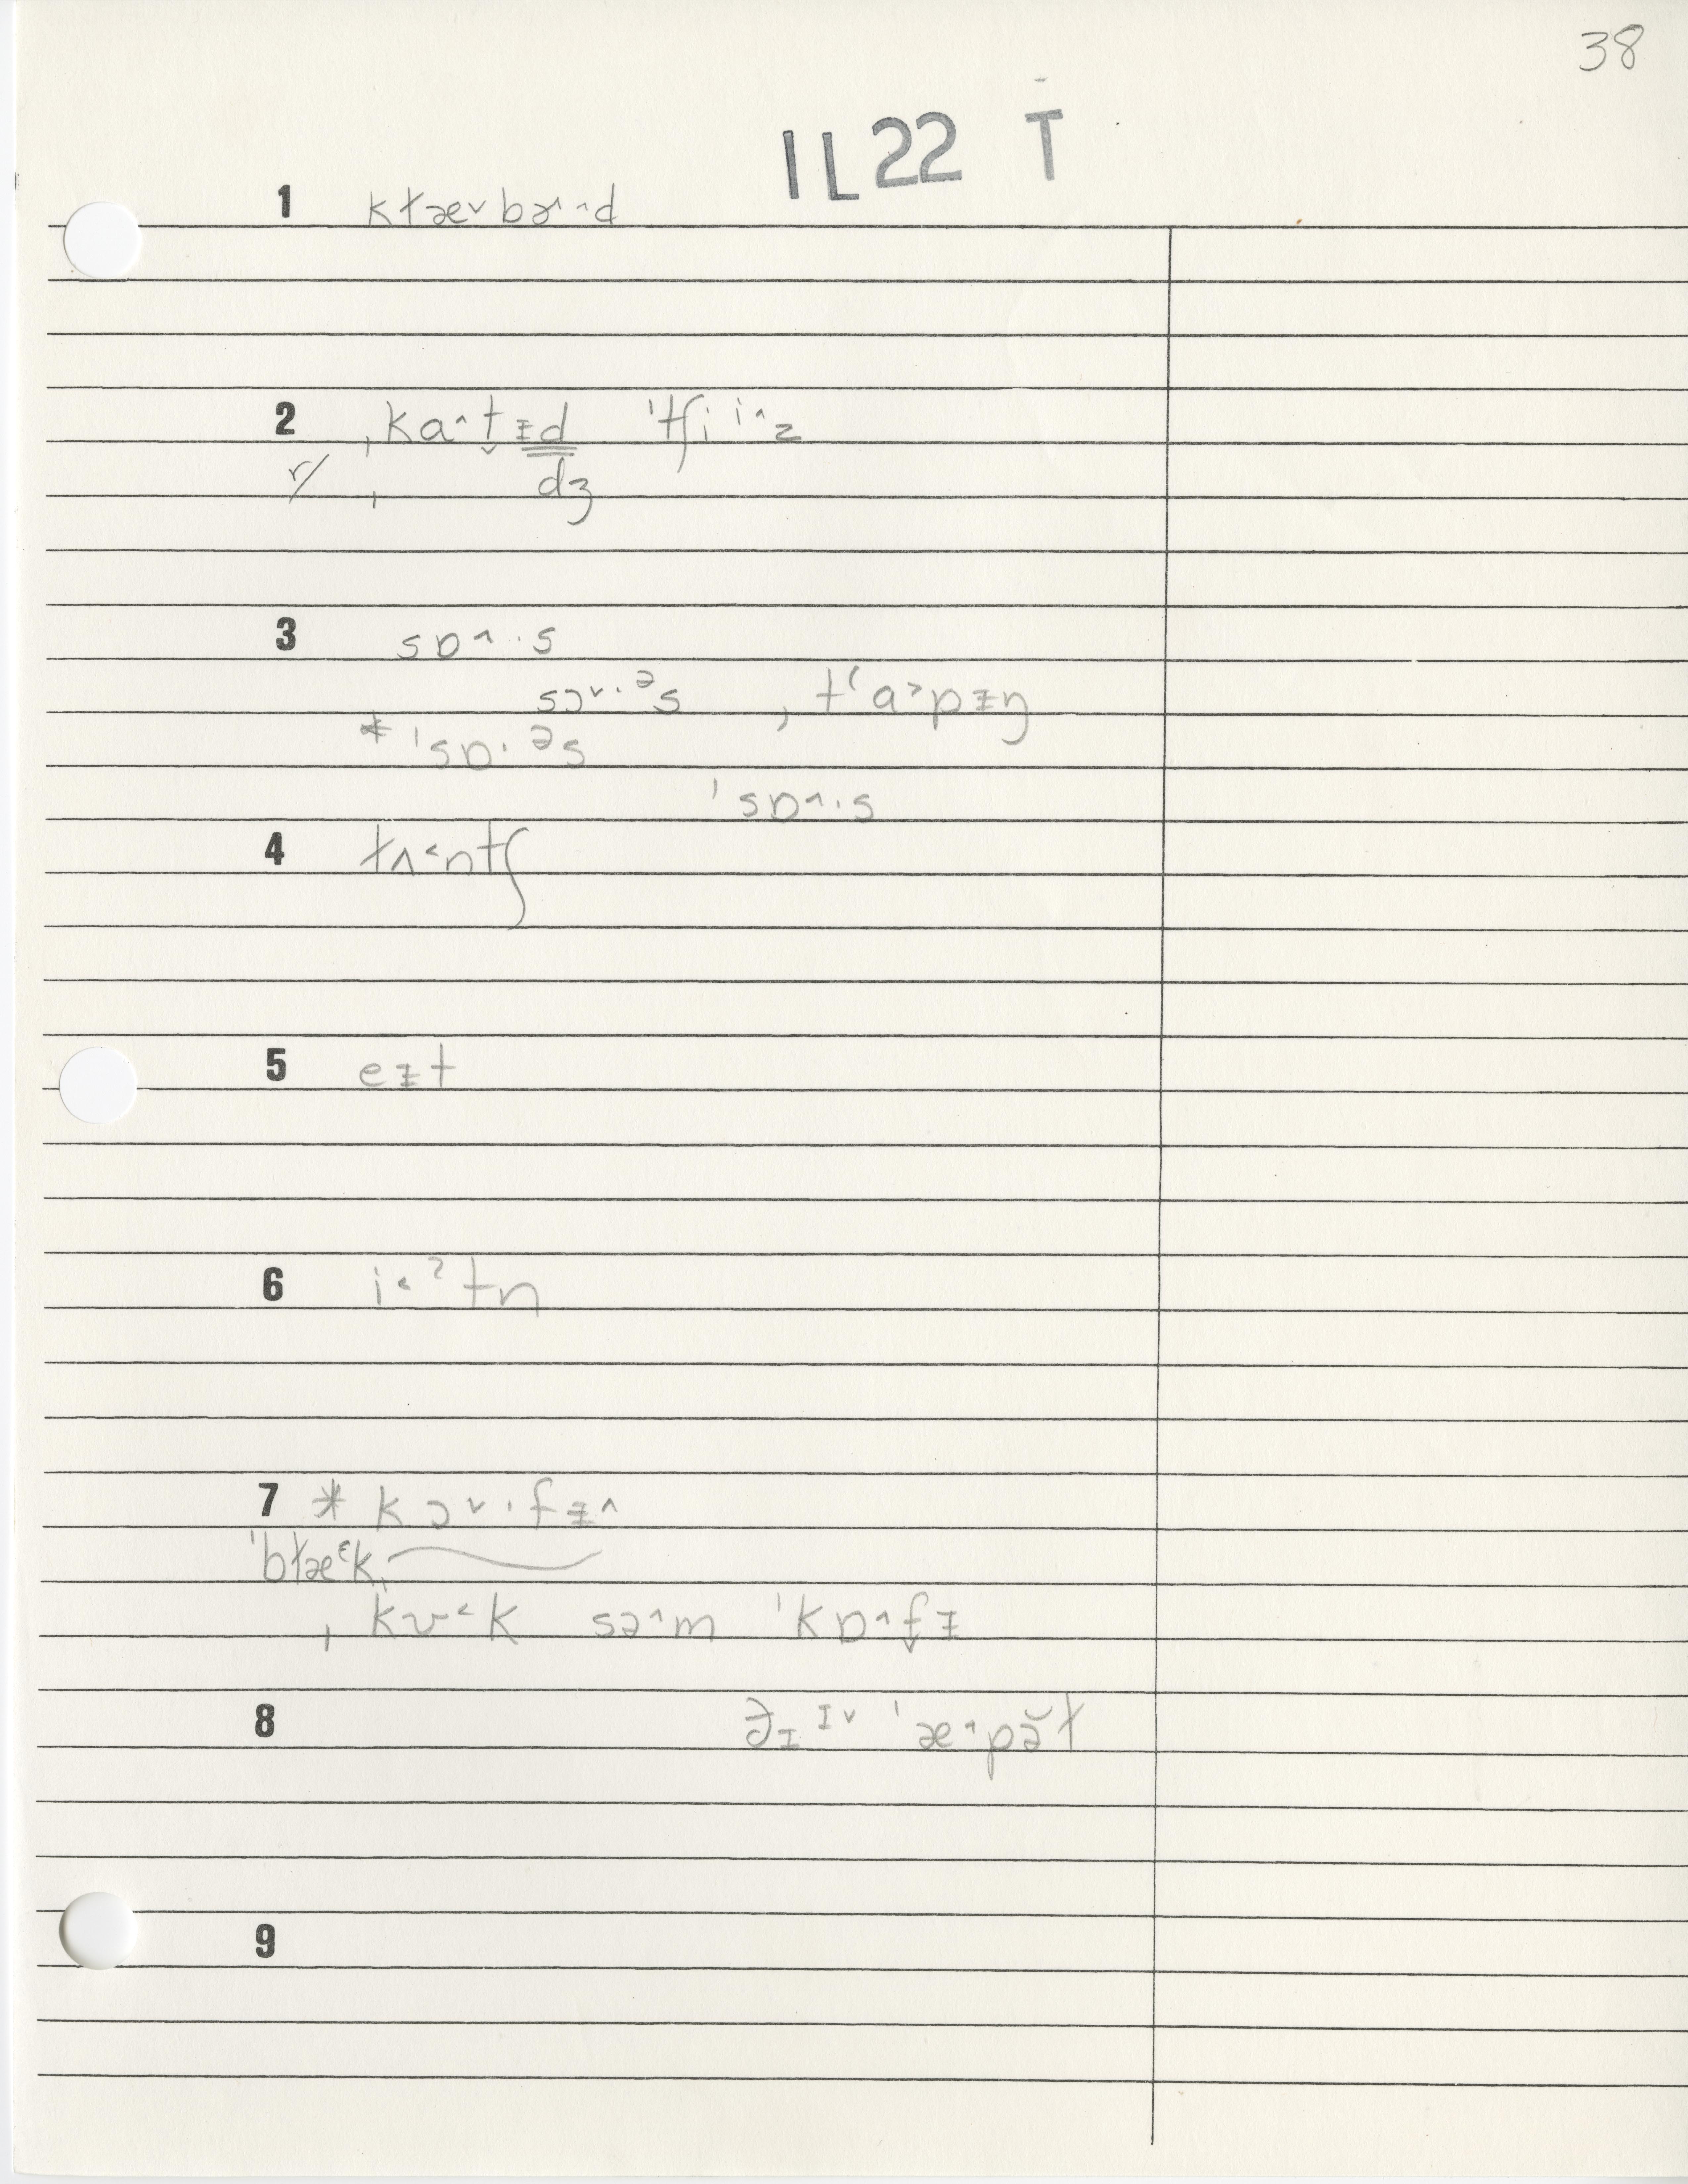 38
IL22 T
1 kɫæ˅bɚ˄·d
2 ˌka˄t̬ᵻd ˈtʃiⁱ˄z
r/ ˌ dʒ
3 sɒ˄·s
sɔ˅·ᵊs , tʻa˃pᵻŋ
* ˈsɒ·ᵊs
ˈsɒ˄·s
4 ɫʌ˂ntʃ
5 eᵻt
6 i˂ˀtn
7 * kɔ˅·fᵻ˄
ˈbɫæᵋk
ˌkʊ˂k sə˄m ˈkɒ˄f̬ᵻ
8 ˈæ˄pə̆ɫ
9